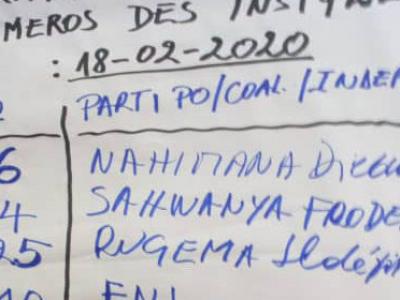 MEROS DES INSTAN
: 18-02-2020
PARTI PO/COAL./INDEP
6 NAHIMANA Dieu
4 SAHWANYA FRODE
25 RUGEMA Ildép
FNL